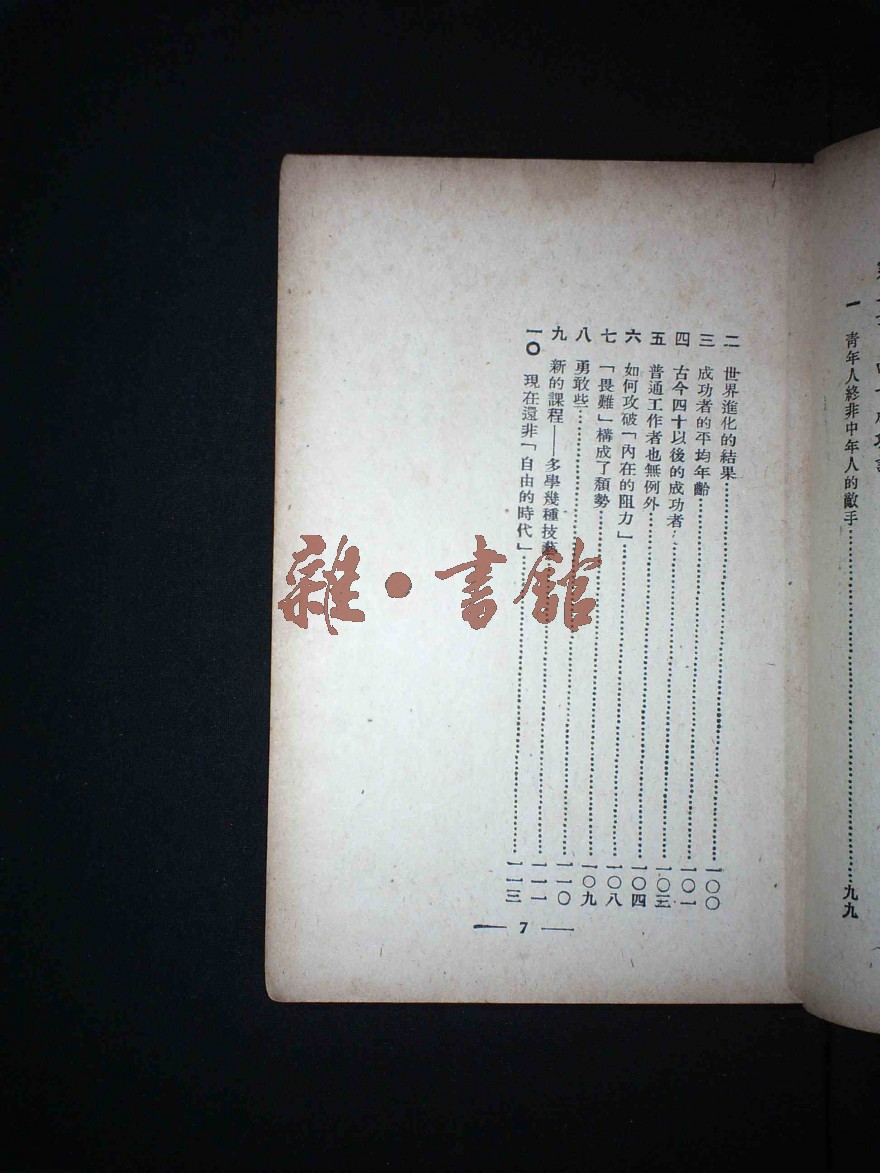 一　青年人終非中年人的敵手……九九
二　世界進化的結果……一〇〇
三　成功者的平均年齡……一〇一
四　古今四十以後的成功者……一〇三
五　普通工作者也無例外……一〇四
六　如何攻破「內在的阻力」……一〇八
七　「畏難」構成了頹勢……一〇九
八　勇敢些……一一〇
九　新的課程——多學幾種技藝……一一一
一〇　現在還非「自由的時代」……一一三
— 7 —
雜·書館